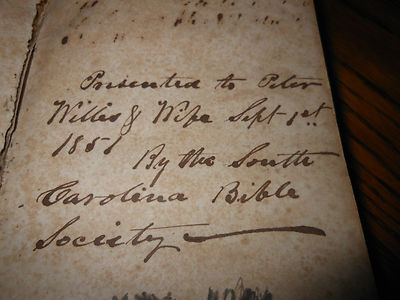 Presented to Peter
Willes & Wife Sept 1st
1851
By the South
Carolina Bible
Society